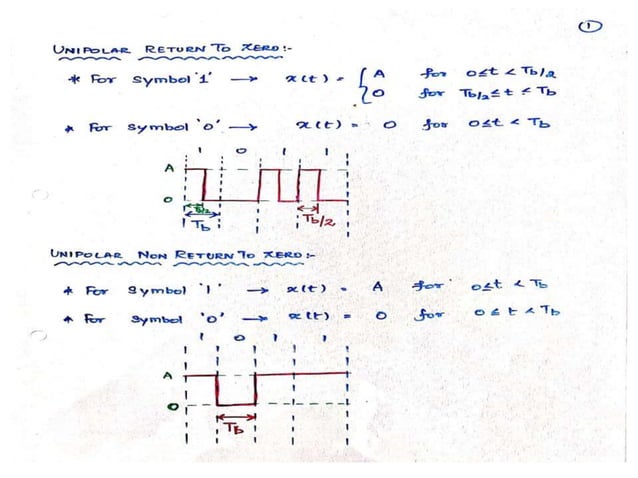 1
UNIPOLAR RETURN TO ZERO:-
* For Symbol '1' → x(t) = { A for 0≤t < Tb/2
0 for Tb/2 ≤ t < Tb
* For Symbol '0' → x(t) = 0 for 0≤t < Tb
1 0 1 1
A
0
Tb/2
Tb
Tb/2
UNIPOLAR NON RETURN TO ZERO:-
* For Symbol '1' → x(t) = A for 0≤t < Tb
* For Symbol '0' → x(t) = 0 for 0≤t < Tb
1 0 1 1
A
0
Tb